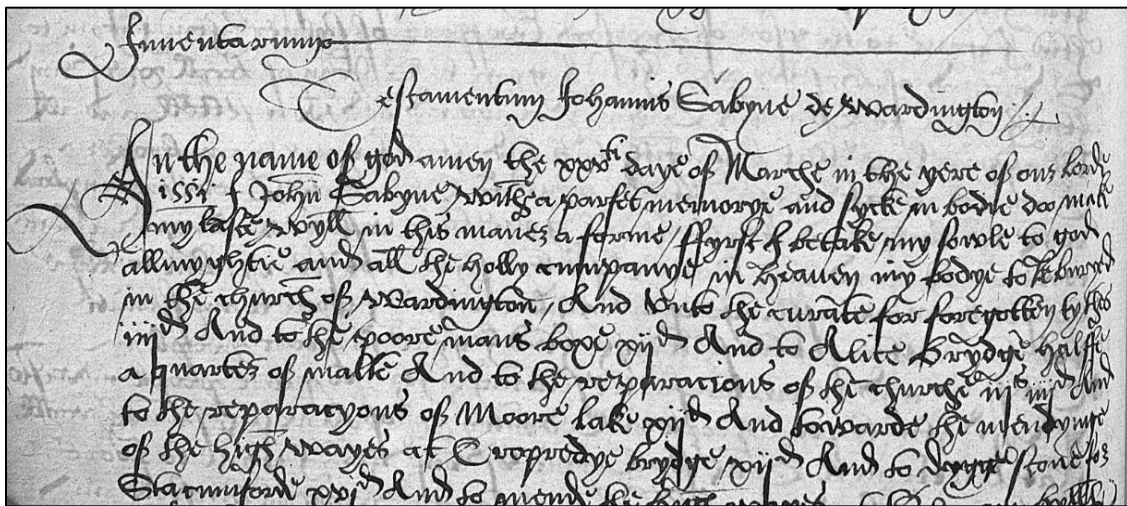 Inventarium
Testamentum Johannis Sabyne de Wardington
In the name of god amen the xxvti daye of Marche in the yere of our lorde
1551 I John Sabyne with a parfet memorye and sycke in bodie doo make
my laste wyll in this maner & forme, ffyrst I betake my sowle to god
allmyghtie and all the holly cumpanye in heaven my bodye to be buryed
in the church of Wardington, And unto the curate for forgotten tythes
iiijd And to the poore mans boxe xijd And to Alice Brydge halffe
a quarter of malte And to the reparacions of the churche iijs iiijd And
to the reparacyons of Moore lake xijd And towarde the mendynge
of the high wayes at Cropredye brydge xijd And to dygge stone for
xvjd And to mende the